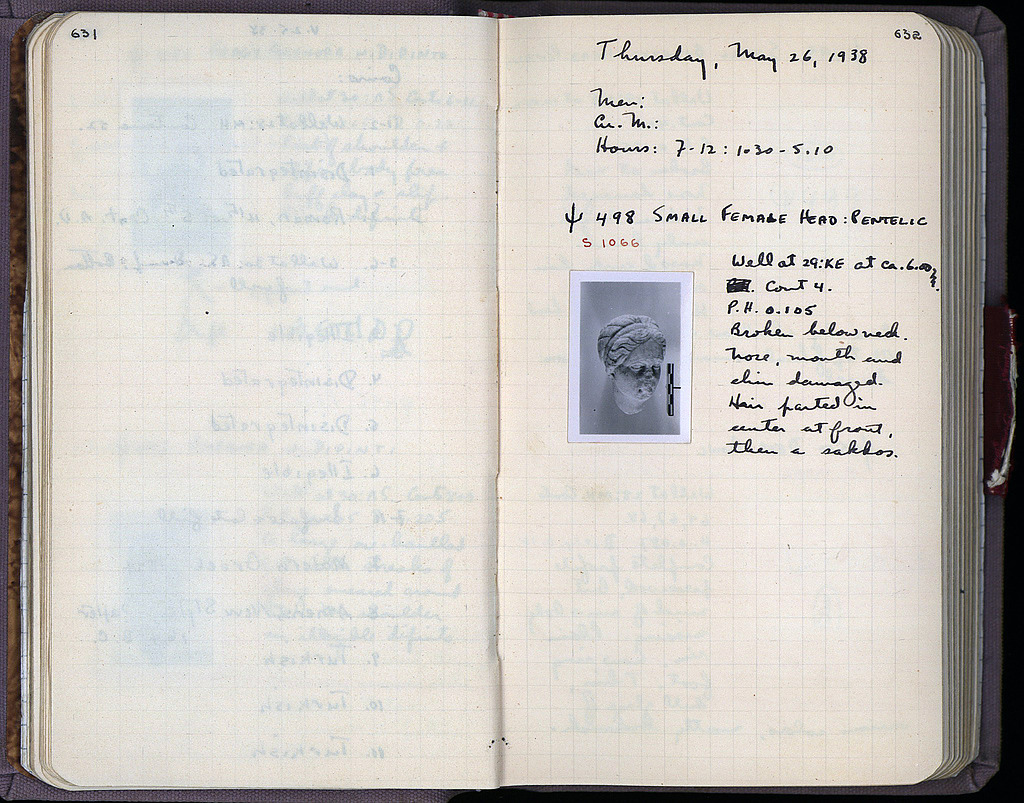 631
632
Thursday, May 26, 1938
Men:
Cu. M.:
Hours: 7-12: 1.30-5.10
ψ 498 SMALL FEMALE HEAD: PENTELIC
S 1066
Well at 29:KE at ca. 6.00
Cont 4.
P.H. 0.105
Broken below neck.
Nose, mouth and
chin damaged.
Hair parted in
center at front,
then a sakkos.